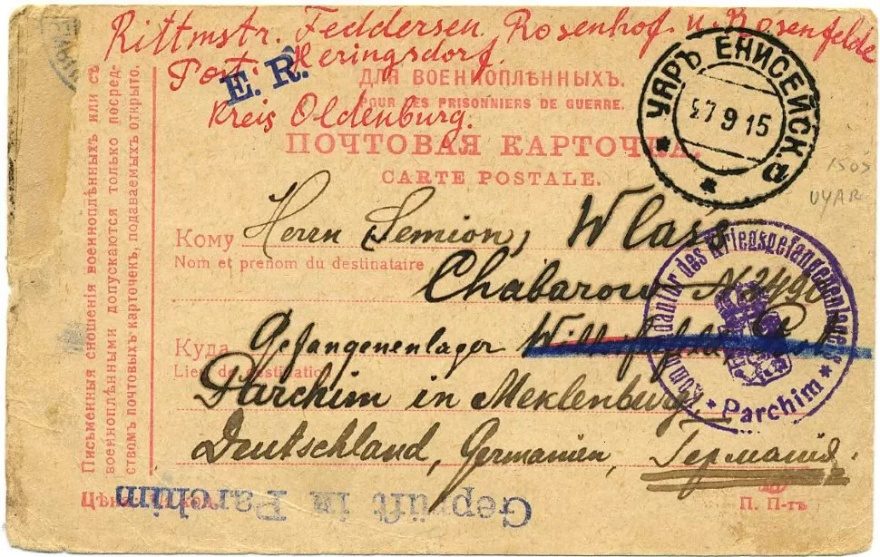 Rittmstr. Feddersen. Rosenhof. u. Rosenfelde
Post: Heringsdorf.
E. R.
Kreis Oldenburg.
ДЛЯ ВОЕННОПЛѢННЫХЪ.
POUR LES PRISONNIERS DE GUERRE.
ПОЧТОВАЯ КАРТОЧКА.
CARTE POSTALE.
УЯРЪ ЕНИСЕЙСК.
27 9 15
1505
UYAR
Письменныя сношенія военноплѣнныхъ или съ
военноплѣнными допускаются только посред-
ствомъ почтовыхъ карточекъ, подаваемыхъ открыто.
Кому Herrn Semion, Wlass
Nom et prénom du destinataire
Chabarow N 2490
Куда Gefangenenlager
Lieu de destination
Parchim in Meklenburg
Deutschland, Germanien, Германія.
Kommandantur des Kriegsgefangenenlagers
* Parchim *
Geprüft in Parchim
Цѣна
П. П-тъ